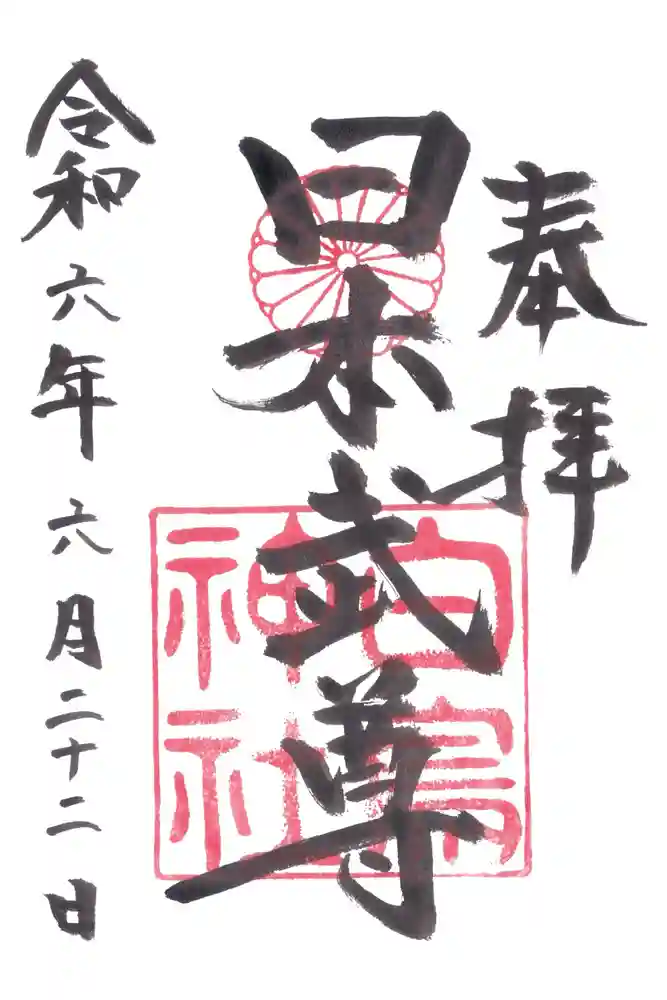 奉拝
日本武尊
白鳥神社
令和六年六月二十二日